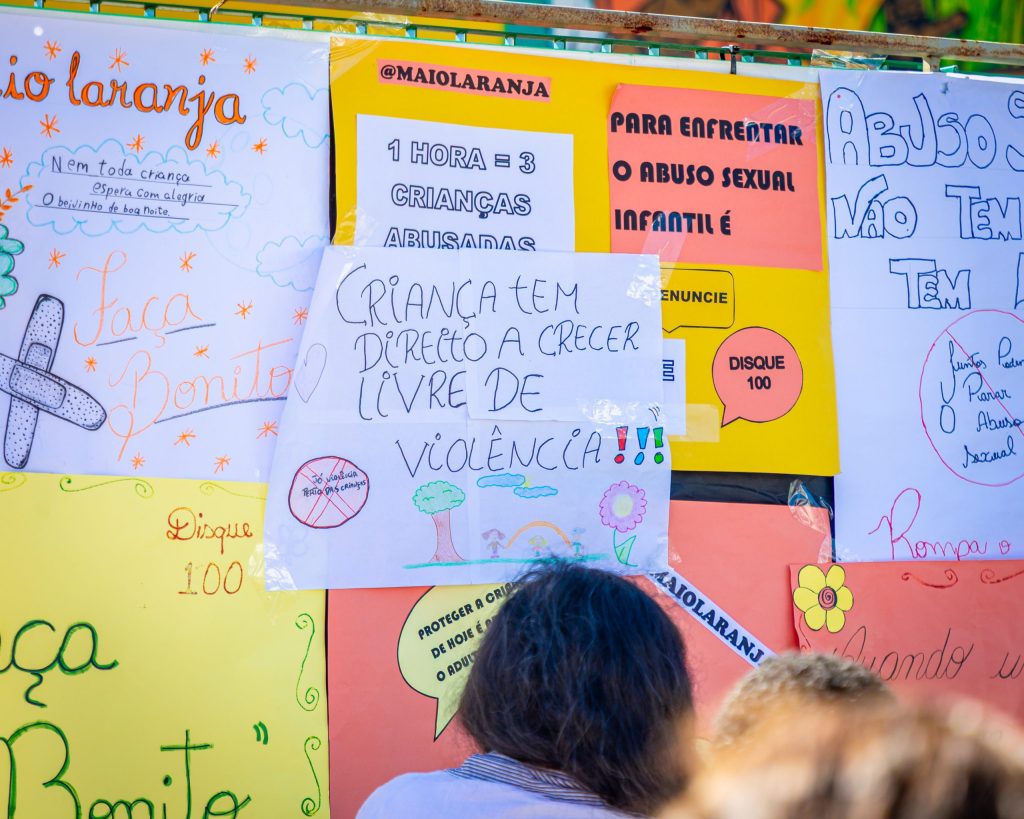 io laranja
Nem toda criança
espera com alegria
O beijinho de boa noite.
Faça
Bonito
@MAIOLARANJA
1 HORA = 3
CRIANÇAS
ABUSADAS
PARA ENFRENTAR
O ABUSO SEXUAL
INFANTIL É
ENUNCIE
DISQUE
100
E
CRIANÇA TEM
DIREITO A CRECER
LIVRE DE
VIOLÊNCIA !!!
VIOLÊNCIA
DAS CRIANÇAS
ABUSO S
NÃO TEM
TEM
Juntos Podem
Parar
O Abuso
sexual
Rompa o
Disque
100
aça
Bonito
PROTEGER A CRIAN
DE HOJE É
O ADUL
MAIOLARANJ
Quando u